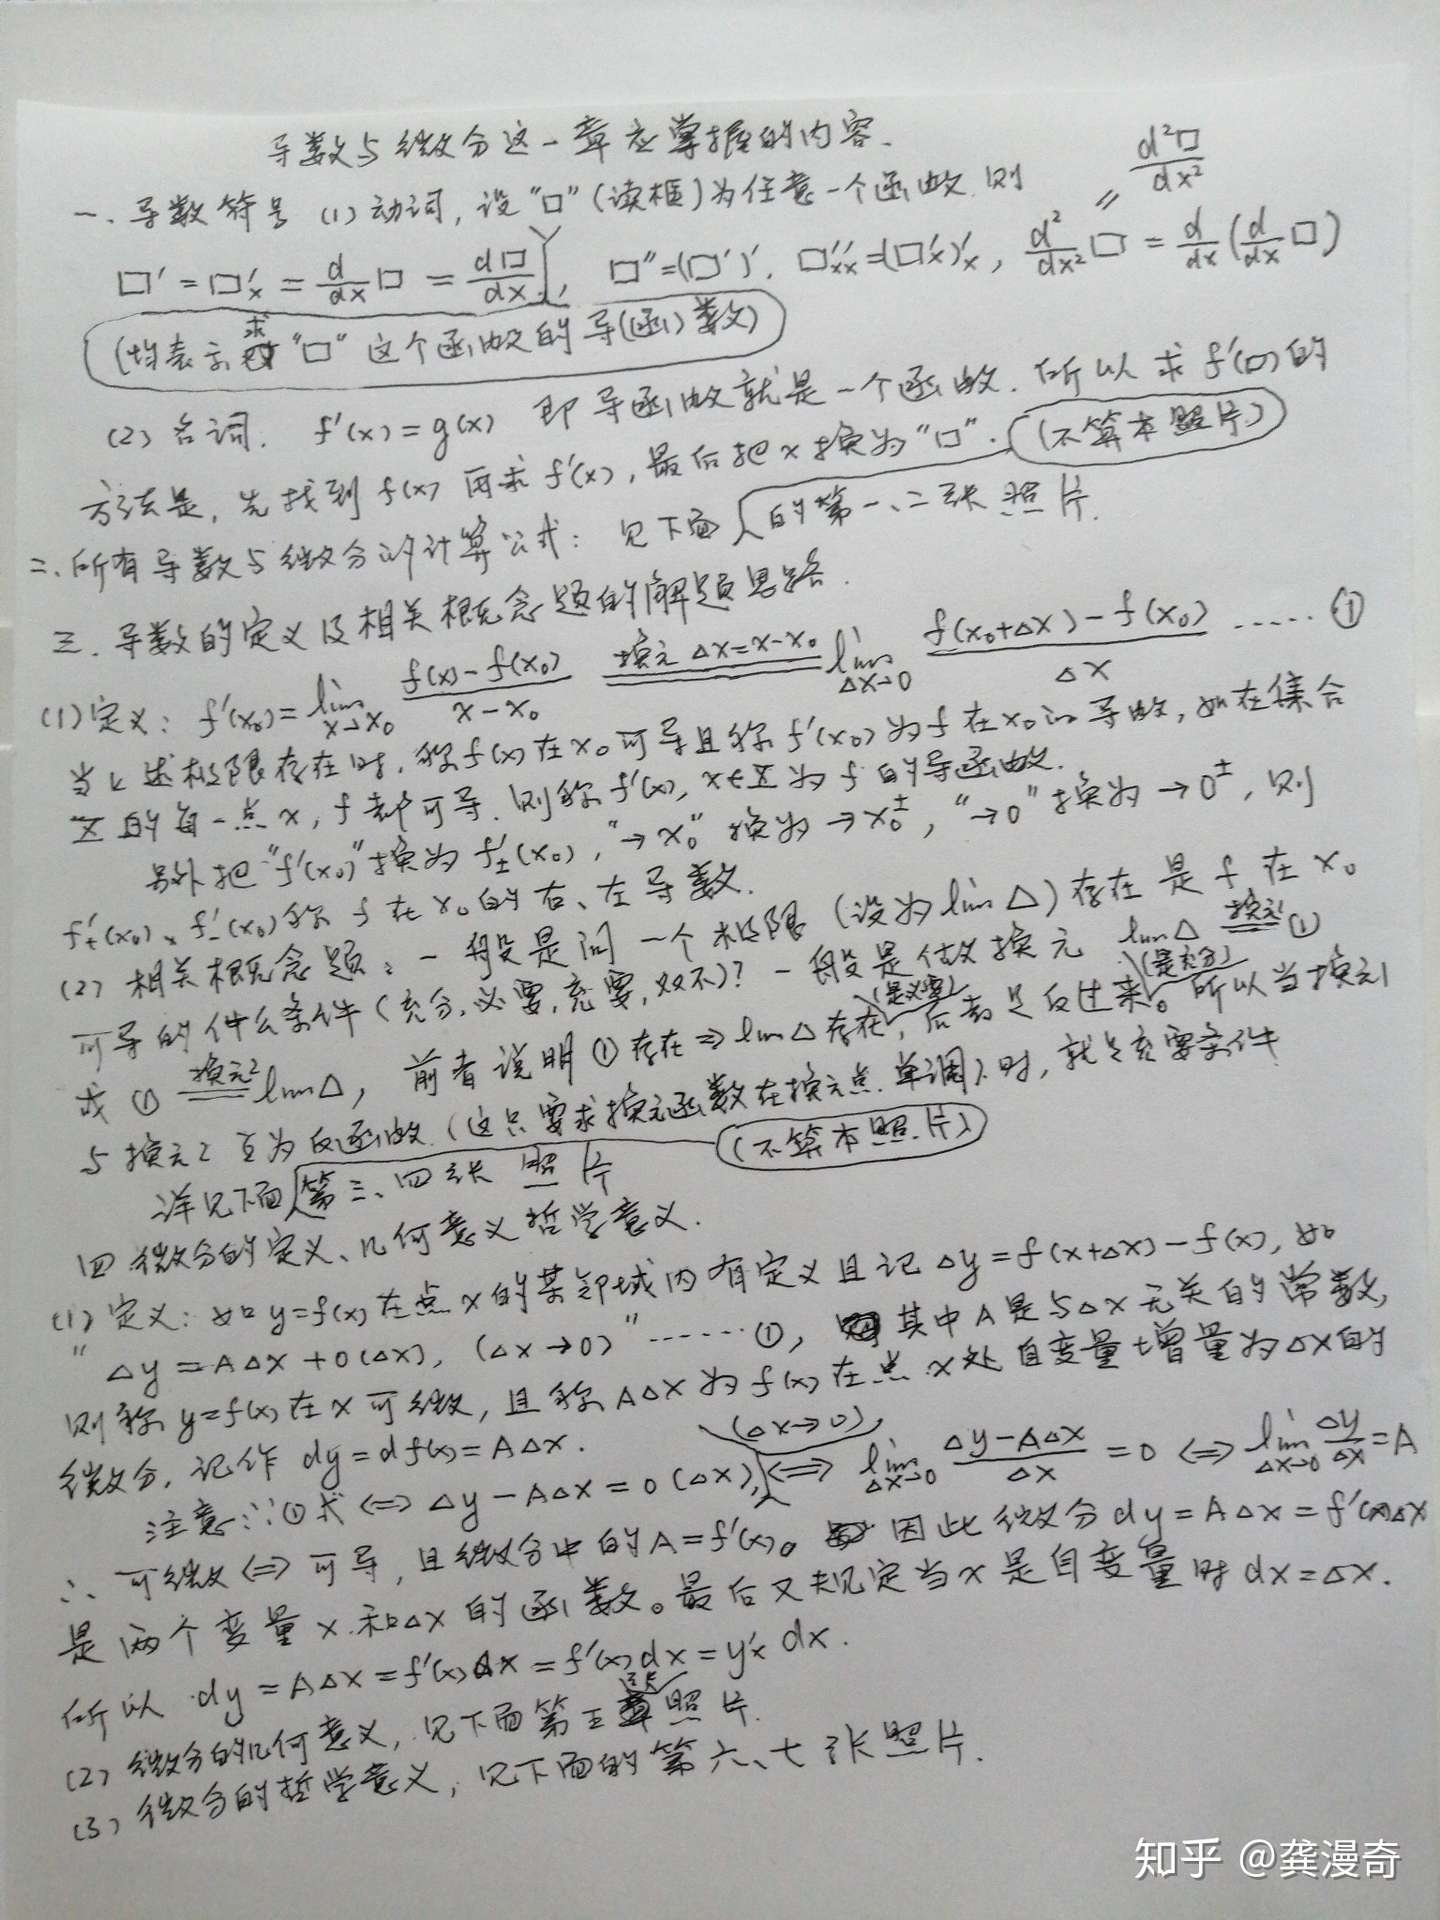 导数与微分这一章应掌握的内容.
一、导数符号 (1) 动词, 设"□"(读框)为任意一个函数, 则
□' = □'ₓ = d/dx □ = d□/dx, □'' = (□')', □''ₓₓ = (□'ₓ)'ₓ, d²/dx² □ = d/dx (d/dx □) = d²□/dx²
(均表示求"□"这个函数的导(函)数)
(2) 名词. f'(x) = g(x) 即导函数就是一个函数. 所以求 f'(□) 的
方法是, 先找到 f(x) 再求 f'(x), 最后把 x 换为"□". (不算本照片)
二. 所有导数与微分的计算公式: 见下面的第一、二张照片.
三. 导数的定义及相关概念题的解题思路.
(1) 定义: f'(x₀) = lim x→x₀ (f(x)-f(x₀))/(x-x₀) 换元 Δx=x-x₀ lim Δx→0 (f(x₀+Δx)-f(x₀))/Δx …… ①
当上述极限存在时, 称 f(x) 在 x₀ 可导且称 f'(x₀) 为 f 在 x₀ 的导数, 如在集合
X 的每一点 x, f 都可导. 则称 f'(x), x∈X 为 f 的导函数.
另外把"f'(x₀)"换为 f'±(x₀), "→x₀" 换为 →x₀±, "→0" 换为 →0±, 则
f'₊(x₀)、f'₋(x₀) 称 f 在 x₀ 的右、左导数.
(2) 相关概念题: 一般是问一个极限 (设为 lim Δ) 存在是 f 在 x₀
可导的什么条件 (充分, 必要, 充要, 双不)? 一般是做换元 lim Δ 换元1 ①
或 ① 换元2 lim Δ, 前者说明 ① 存在 ⇒ lim Δ 存在(是必要), 后者是反过来(是充分)。所以当换元1
与换元2 互为反函数 (这只要求换元函数在换元点单调) 时, 就是充要条件
详见下面第三、四张照片 (不算本照片)
四 微分的定义、几何意义哲学意义.
(1) 定义: 如 y=f(x) 在点 x 的某邻域内有定义且记 Δy=f(x+Δx)-f(x), 如
" Δy = AΔx + o(Δx), (Δx→0) " …… ①, 其中 A 是与 Δx 无关的常数,
则称 y=f(x) 在 x 可微, 且称 AΔx 为 f(x) 在点 x 处自变量增量为 Δx 的
微分, 记作 dy = df(x) = AΔx.
注意: ∵ ①式 ⇔ Δy-AΔx = o(Δx), (Δx→0), ⇔ lim Δx→0 (Δy-AΔx)/Δx = 0 ⇔ lim Δx→0 Δy/Δx = A
∴ 可微 ⇔ 可导, 且微分中的 A=f'(x)。因此微分 dy = AΔx = f'(x)Δx
是两个变量 x 和 Δx 的函数。最后又规定当 x 是自变量时 dx=Δx.
所以 dy = AΔx = f'(x)Δx = f'(x)dx = y'ₓ dx.
(2) 微分的几何意义, 见下面第五张照片.
(3) 微分的哲学意义, 见下面的第六、七张照片.
知乎 @龚漫奇